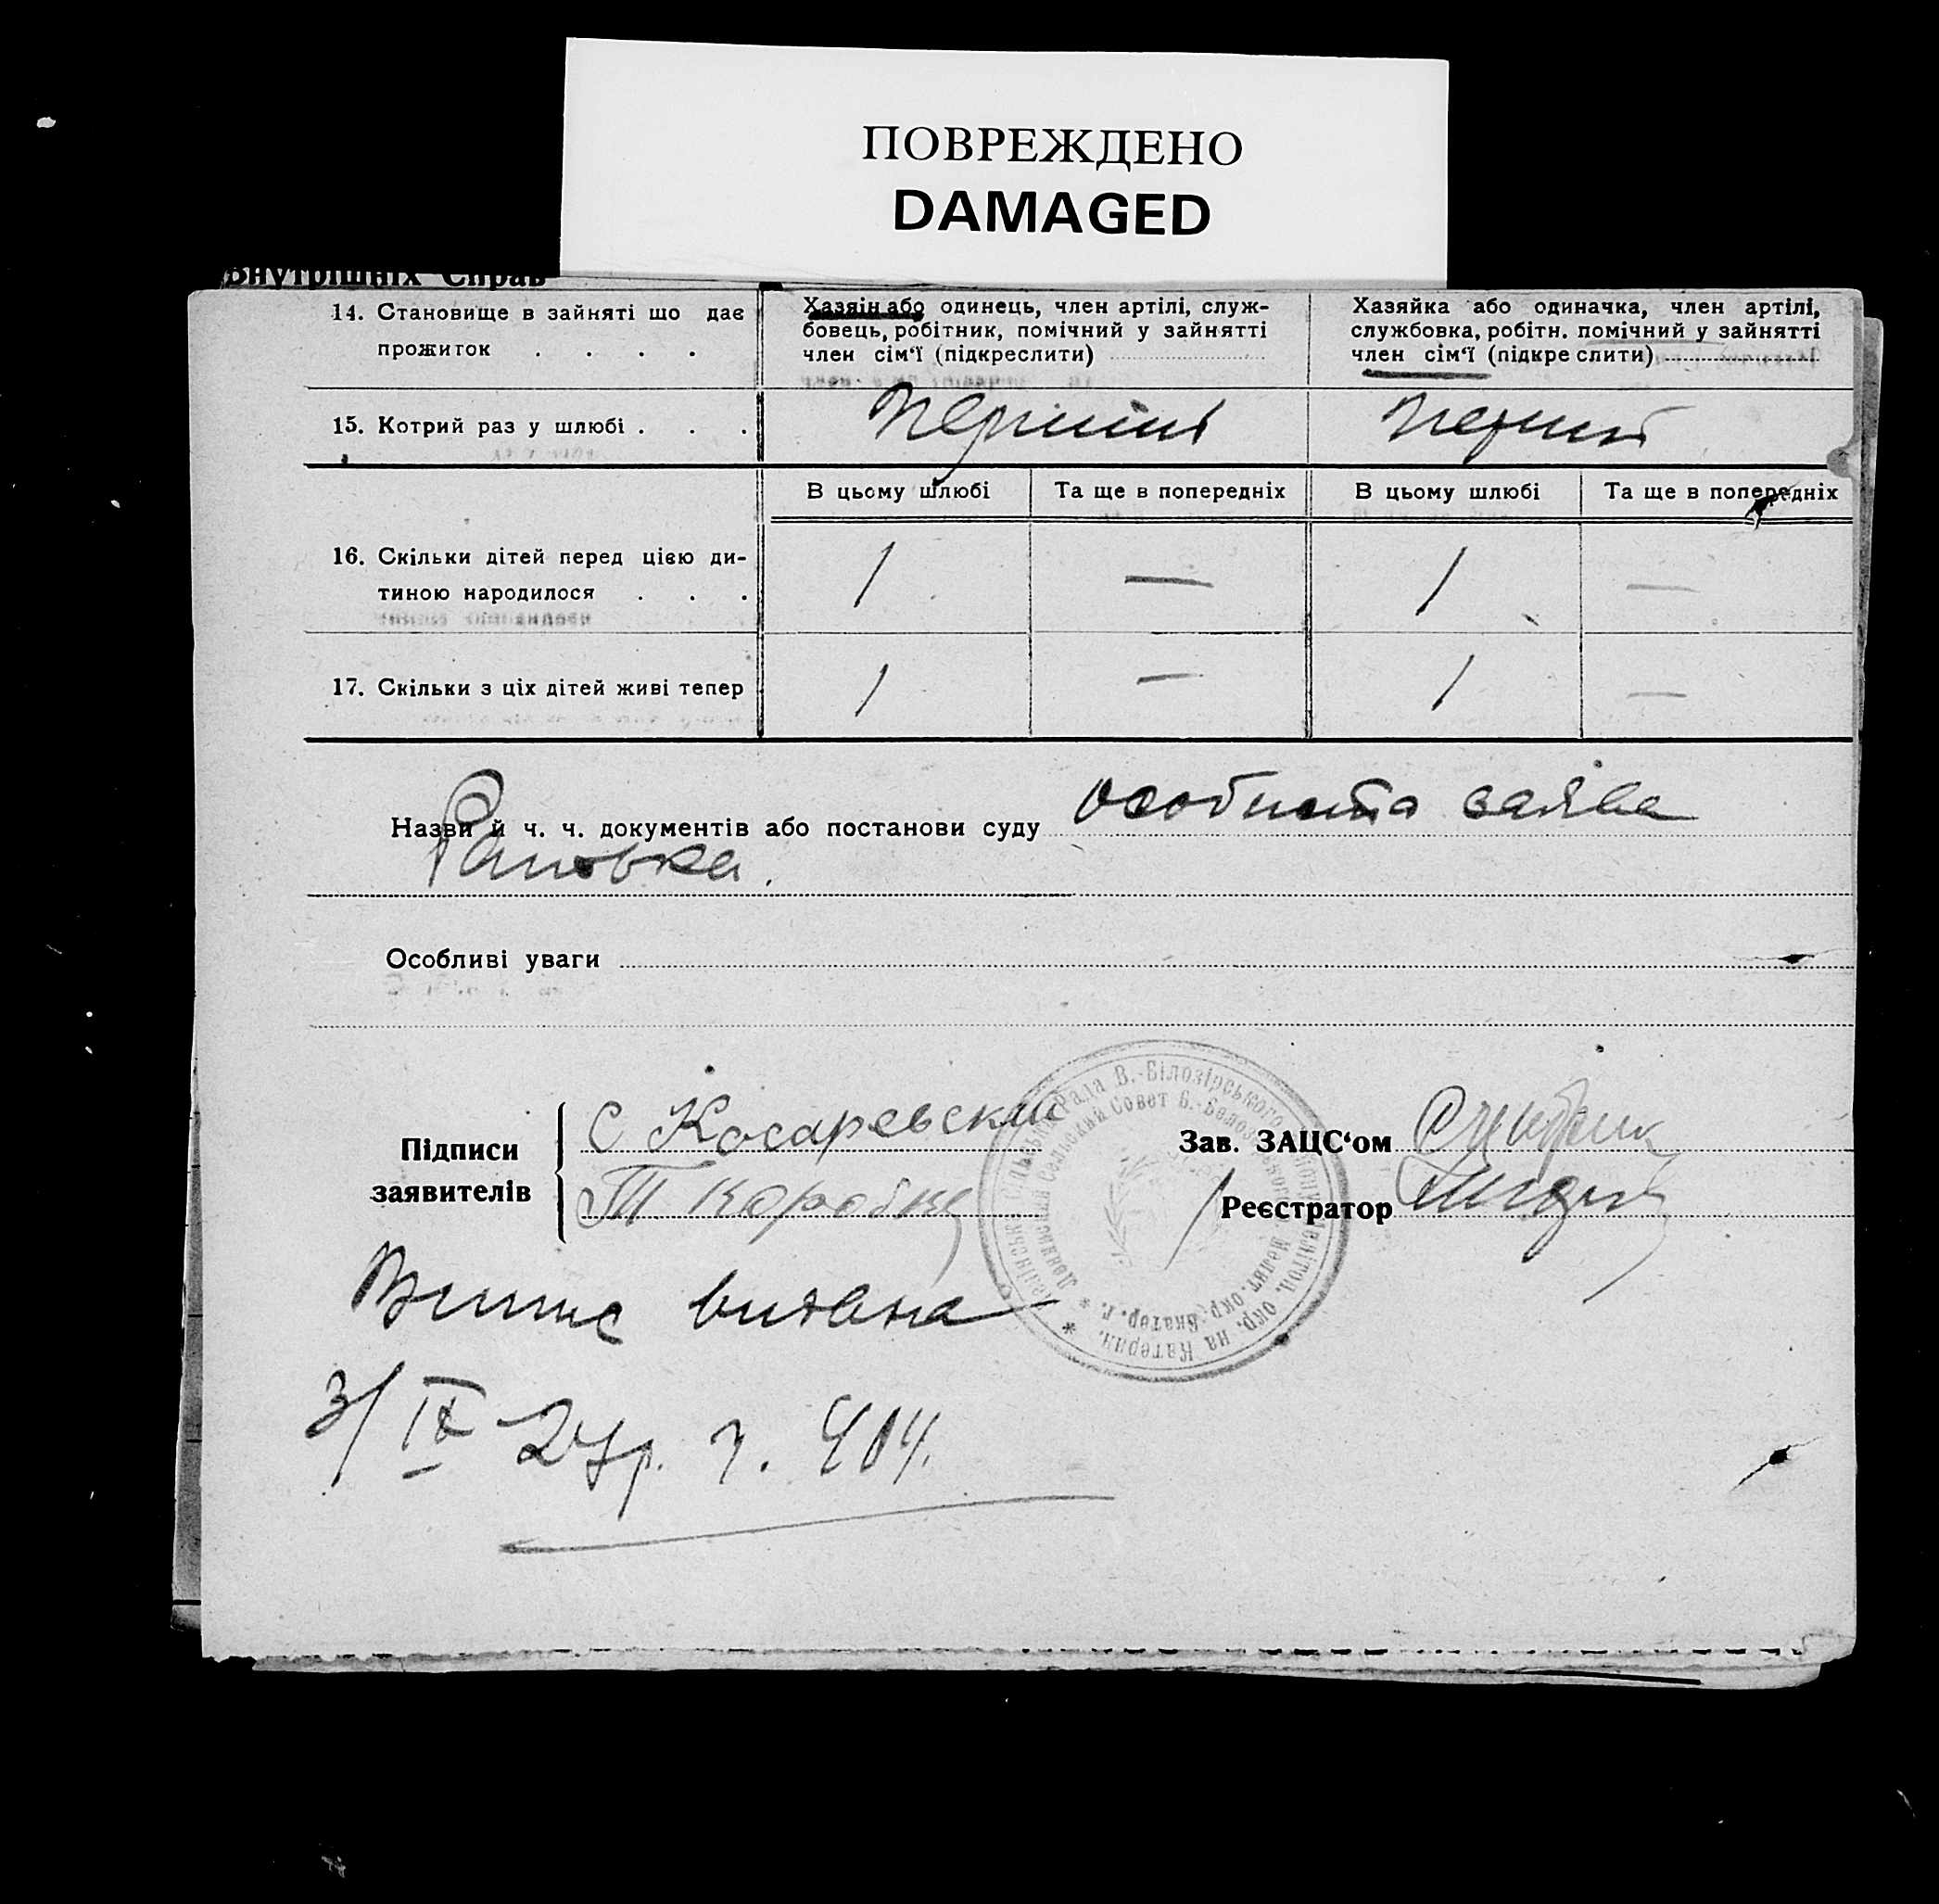 ПОВРЕЖДЕНО
DAMAGED
Внутрішніх Справ
14. Становище в зайняті що дає
прожиток . . . .
Хазяін або одинець, член артілі, служ-
бовець, робітник, помічний у зайнятті
член сім'ї (підкреслити)
Хазяйка або одиначка, член артілі,
службовка, робітн. помічний у зайнятті
член сім'ї (підкреслити)
15. Котрий раз у шлюбі . . .
Перший
Перший
В цьому шлюбі
Та ще в попередніх
В цьому шлюбі
Та ще в попередніх
16. Скільки дітей перед цією ди-
тиною народилося . . .
1 — 1 —
17. Скільки з ціх дітей живі тепер
1 — 1 —
Назви й ч. ч. документів або постанови суду особиста заява
Особливі уваги
Підписи
заявителів
С Косаревский
Т Коробка
Рада В.-Білозірського
Сельский Совет Б.-Белоз
Меліт. окр. Екатер. г.
окр. на Катерин.
Зав. ЗАЦС'ом
Реєстратор
Випис видана
3/IX 27р. ч. 404.